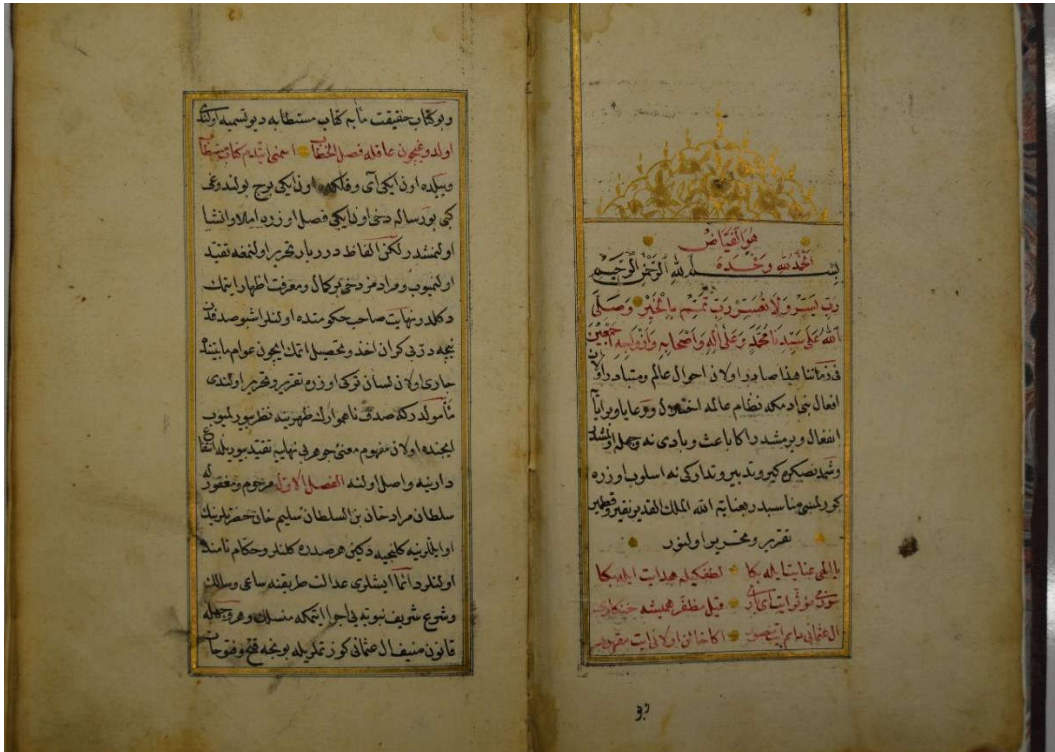 هو الفياض
الحمد لله وحده
بسم الله الرحمن الرحيم
رب يسر ولا تعسر رب تمم بالخير وصلى
الله على سيدنا محمد وعلى اله واصحابه وازواجه اجمعين
فى زماننا هذا صادر اولان احوال عالم ومتبادر اولان
افعال بنى ادمكه نظام عالمه اختلال ورعايا وبرايايه
انفعال ويرمشدر اكا باعث وبادى نه وجهله اولمشدر
وشمديصكره كيرو تدبير وتداركى نه اسلوب اوزره
كورلمسى مناسبدر بعناية الله الملك القدير نقير وقطمير
تقرير وتحرير اولنور
يا الهى عنايت ايله بكا لطفكيله هدايت ايله بكا
سوزى مؤثر ايت قيل مظفر هميشه خنكارى
ال عثمانى دائم ايت منصور اكا خائن اولانى ايت مقهور
وبو
وبو كتاب حقيقت مأبه كتاب مستطابه ديو تسميه اولندى
اولدوغيچون عاقله فصل الخطاب احمنى ايتدم كتاب مستطاب
وييلده اون ايكى آى وفلكده اون ايكى برج بولندوغى
كبى بو رساله دخى اون ايكى فصل اوزره املا وانشا
اولنمشدر لكن الفاظ درربار تحرير اولنمغه تقيد
اولنميوب ومرادمز دخى بر كمال ومعرفت اظهار ايتمك
دكلدر نهايت صاحب حكومتده اولنلر اشبو صدفدن
نيجه در بى كران اخذ وتحصيل اتمك ايچون عوام مابيننده
جارى اولان لسان تركى اوزره تقرير وتحرير اولندى
مأمولدركه صدف ناهموارك ظهرينه نظر بيورلميوب
ايچنده اولان مفهوم معنئ جوهر بى نهايه تقيد بيوريله
دارينه واصل اولنه الفصل الاول مرحوم ومغفور له
سلطان مراد خان بن السلطان سليم خان حضرتلرينك
اوائللرينه كلنجيه دكين هر صدره كلنلر وحكام نامنده
اولنلر دائما ايشلرى عدالت طريقنه ساعى وسالك
وشرع شريف نبويه يى اجرا ايتمكه منسلك وهر وجهله
قانون منيف ال عثمانى كوزتمكريله بونجه فتح وفتوحات